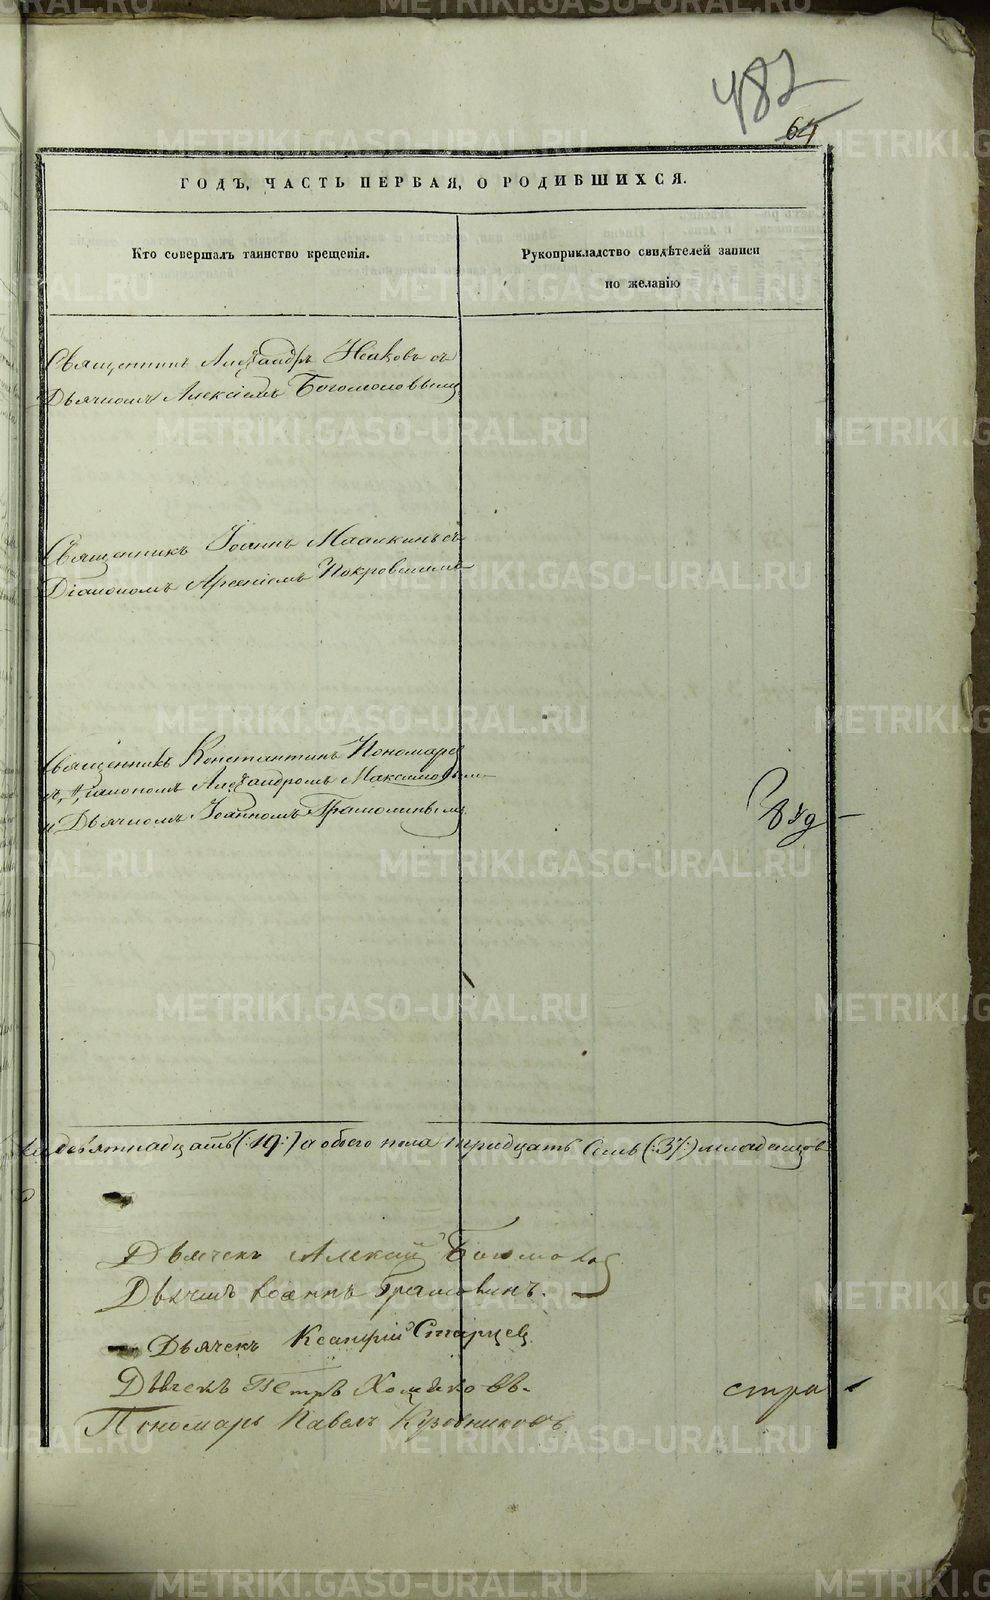 482
64
ГОДЪ, ЧАСТЬ ПЕРВАЯ, О РОДИВШИХСЯ.
Кто совершалъ таинство крещенія.
Рукоприкладство свидѣтелей записи
по желанію
Священникъ Александръ Исаковъ съ
Дьячкомъ Алексіемъ Богомоловымъ
Священникъ Іоаннъ съ
Діакономъ Арсеніемъ Покровскимъ
Священникъ Константинъ Пономаре
съ Діакономъ Александромъ Максимовымъ
и Дьячкомъ Іоанномъ Грамолинымъ
девятнадцать (:19:) а обоего пола тридцать семь (:37:) младенцовъ
Дьячекъ Алексій Богомолов
Дьячекъ Іоаннъ Грамолинъ.
Дьячекъ Старцев
Дьячекъ Петръ Хомяковъ.
стра
Пономарь Павелъ Кузовниковъ
METRIKI.GASO-URAL.RU